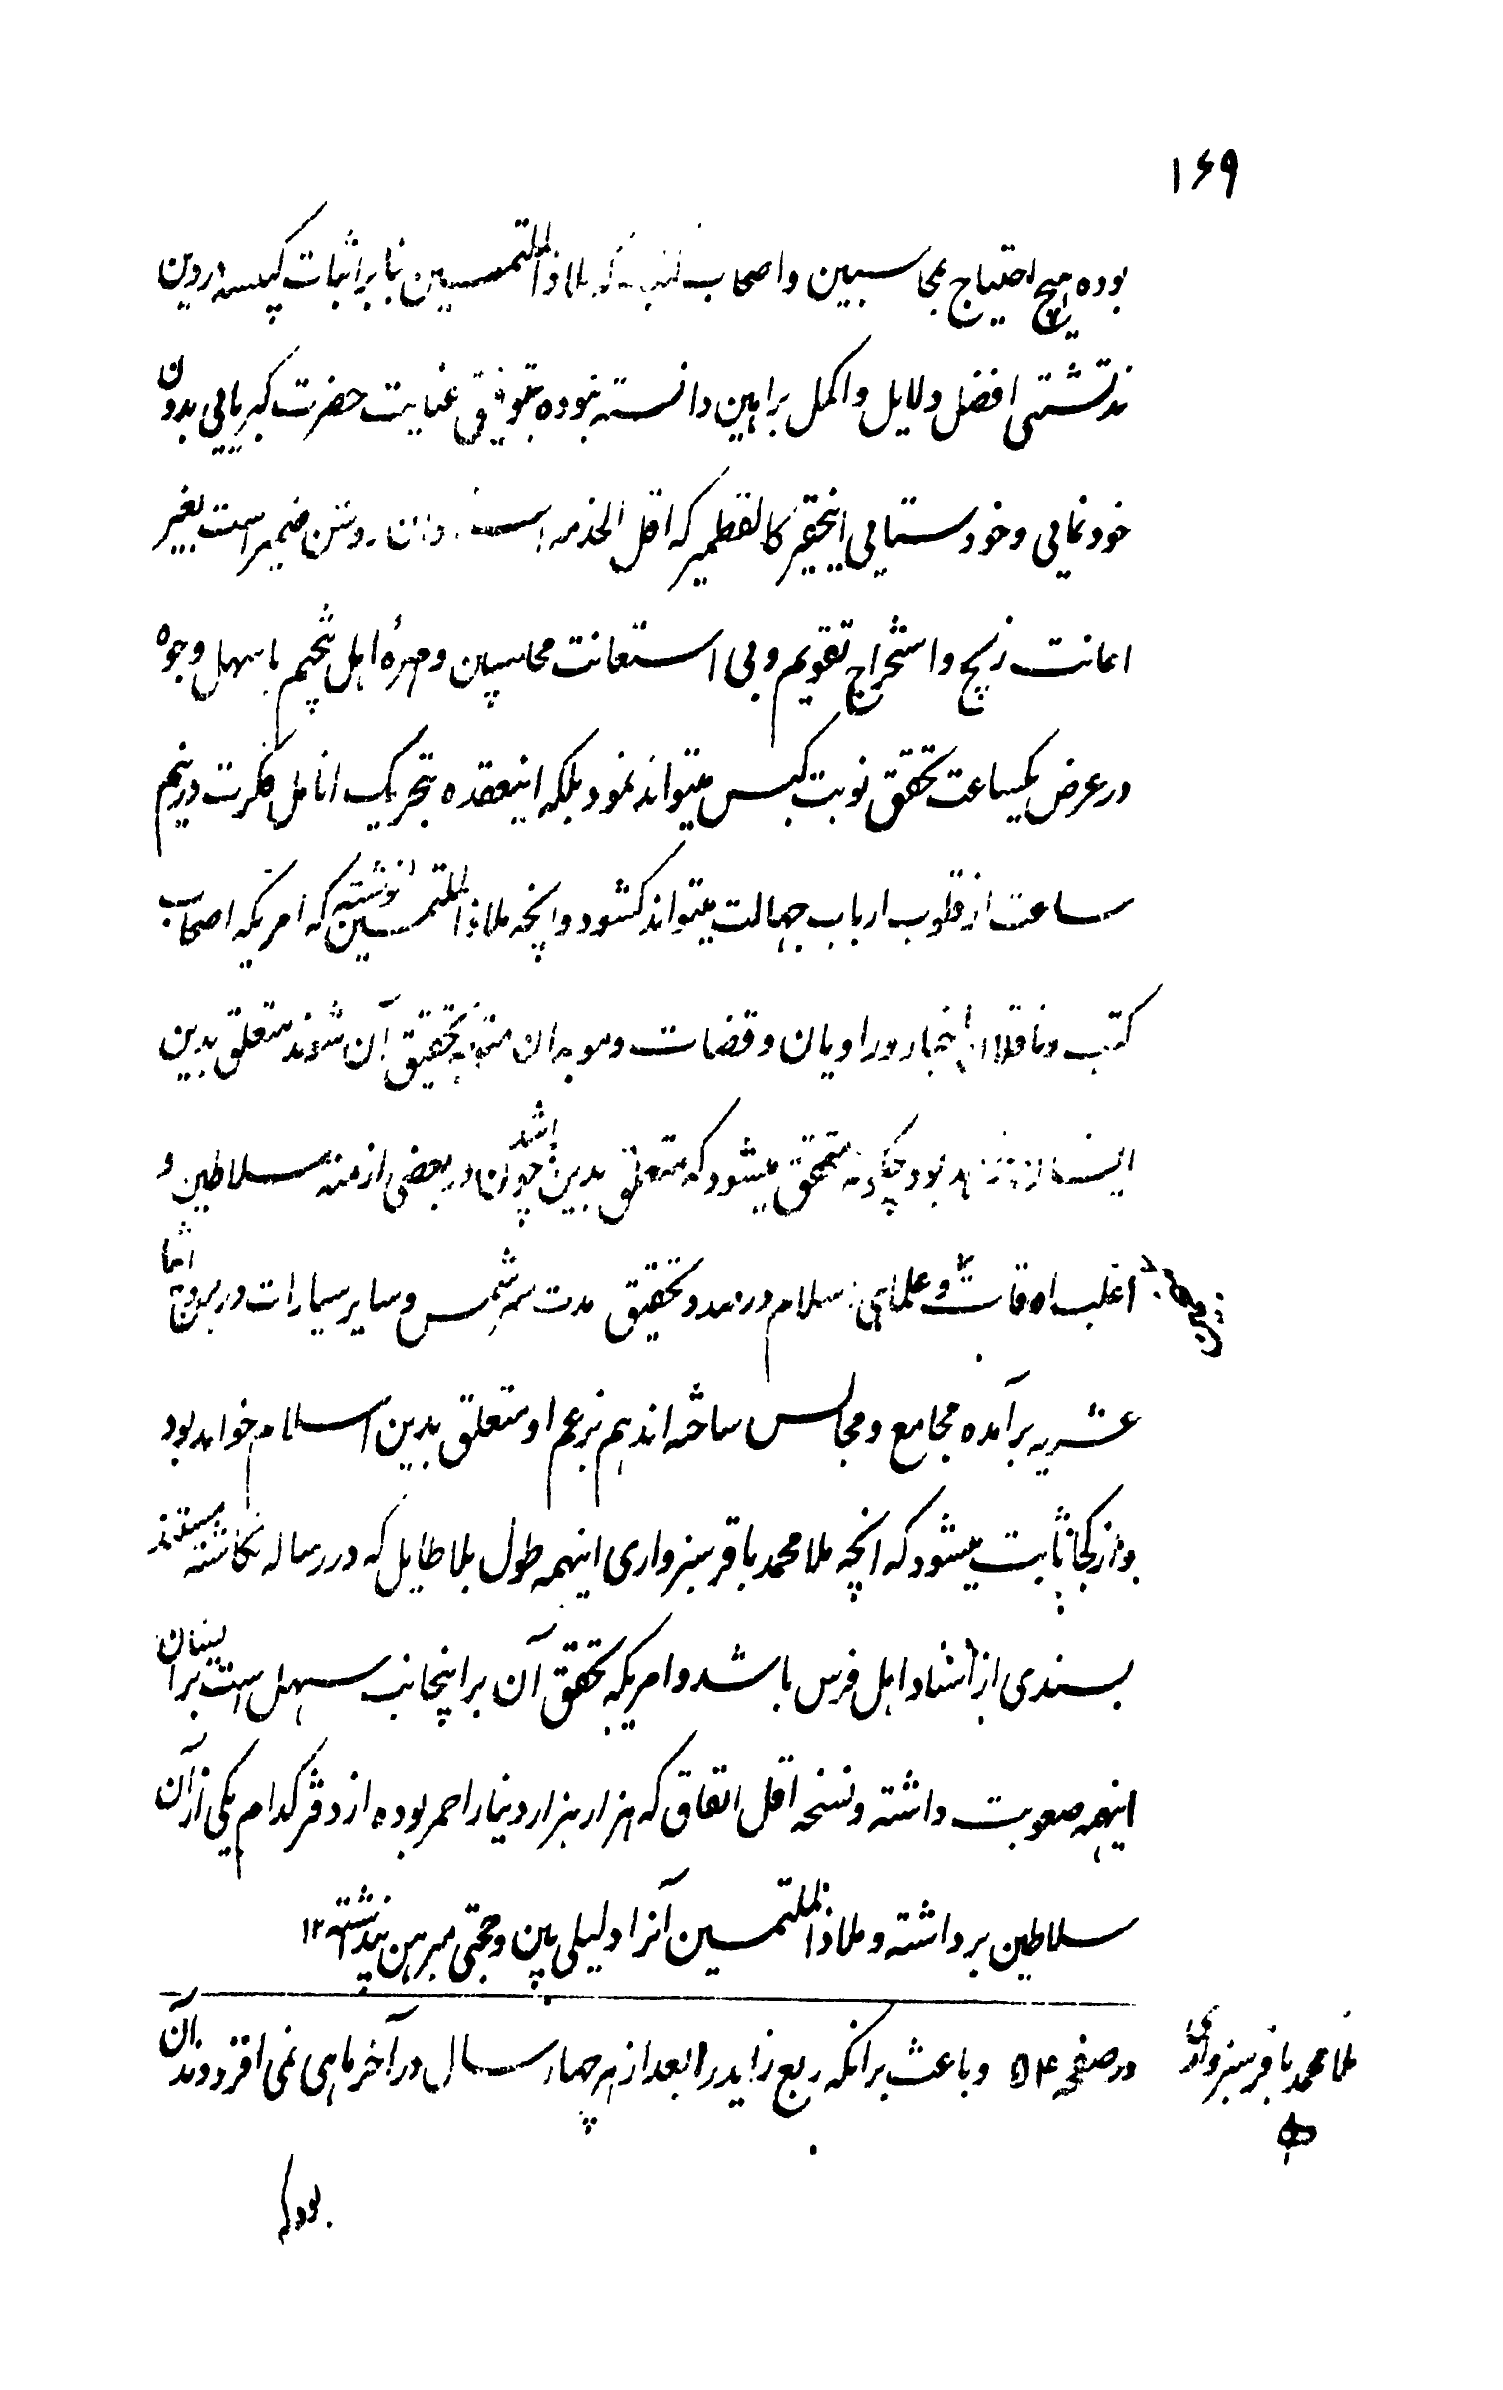 ۱۶۹
بوده هیچ احتیاج بمحاسبین واصحاب ملاذ الملتمسین بنا بر اثبات کبیسه در دین
زرتشتی افضل دلایل واکمل براهین دانسته نبوده بتوفیق عنایت حضرت کبریایی بدون
خود نمایی وخود ستایی اینحقیر کالقطمیر که اقل الخدمه روشن ضمیر است بغیر
اعانت زیچ واستخراج تقویم وبی استعانت محاسبین ومهرهٔ اهل تنجیم باسهل وجوه
در عرض یکساعت تحقق نوبت کبس میتواند نمود بلکه اینعقده بتحریک انامل فکرت در نیم
ساعت از قلوب ارباب جهالت میتواند کشود وانچه ملاذ الملتمسین نوشته که امریکه اصحاب
کتب وناقلان اخبار وراویان وقضات وموبدان متوجه تحقیق آن شوند متعلق بدین
ایشان نخواهد بود چگونه متحقق میشود که متعلق بدین باشد چون در بعضی ازمنه سلاطین و
اغلب اوقات وعلمای اسلام درصدد تحقیق مدت سیر شمس وسایر سیارات در بروج اثنا
عشریه برآمده مجامع ومجالس ساخته اند هم بزعم او متعلق بدین اسلام خواهد بود
واز کجا ثابت میشود که انچه ملا محمد باقر سبزواری اینهمه طول بلا طایل که در رساله نگاشته مستند
بسندی از اسناد اهل فرس باشد وامریکه تحقق آن بر اینجانب سهل است بر ایشان
اینهمه صعوبت داشته ونسخه اقل اتفاق که هزار هزار دینار احمر بوده از دفتر کدام یکی از آن
سلاطین برداشته وملاذ الملتمسین آنرا دلیلی مبین وحجتی مبرهن پنداشته ۱۲
ملا محمد باقر سبزواری
در صفحه ۵۴ وباعث برانکه ربع زاید را بعد از هر چهار سال در آخر ماهی نمی افزودند آن
بود که